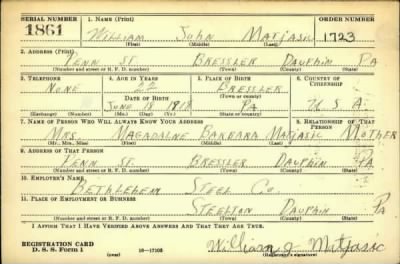 SERIAL NUMBER 1. NAME (Print) ORDER NUMBER
1861 WILLIAM JOHN MATJASIC 1723
(First) (Middle) (Last)
2. ADDRESS (Print)
PENN ST. BRESSLER DAUPHIN PA
(Number and street or R. F. D. number) (Town) (County) (State)
3. TELEPHONE 4. AGE IN YEARS 5. PLACE OF BIRTH 6. COUNTRY OF CITIZENSHIP
NONE 22 BRESSLER
DATE OF BIRTH (Town or county)
JUNE 18 1918 PA U.S.A.
(Exchange) (Number) (Mo.) (Day) (Yr.) (State or country)
7. NAME OF PERSON WHO WILL ALWAYS KNOW YOUR ADDRESS 8. RELATIONSHIP OF THAT PERSON
MRS. MAGADALNE BARBARA MATJASIC MOTHER
(Mr., Mrs., Miss) (First) (Middle) (Last)
9. ADDRESS OF THAT PERSON
PENN ST. BRESSLER DAUPHIN PA.
(Number and street or R. F. D. number) (Town) (County) (State)
10. EMPLOYER'S NAME
BETHLEHEM STEEL CO.
11. PLACE OF EMPLOYMENT OR BUSINESS
STEELTON DAUPHIN PA
(Number and street or R. F. D. number) (Town) (County) (State)
I AFFIRM THAT I HAVE VERIFIED ABOVE ANSWERS AND THAT THEY ARE TRUE.
REGISTRATION CARD
D. S. S. Form 1 (over) 16—17105
William J Matjasic
(Registrant's signature)